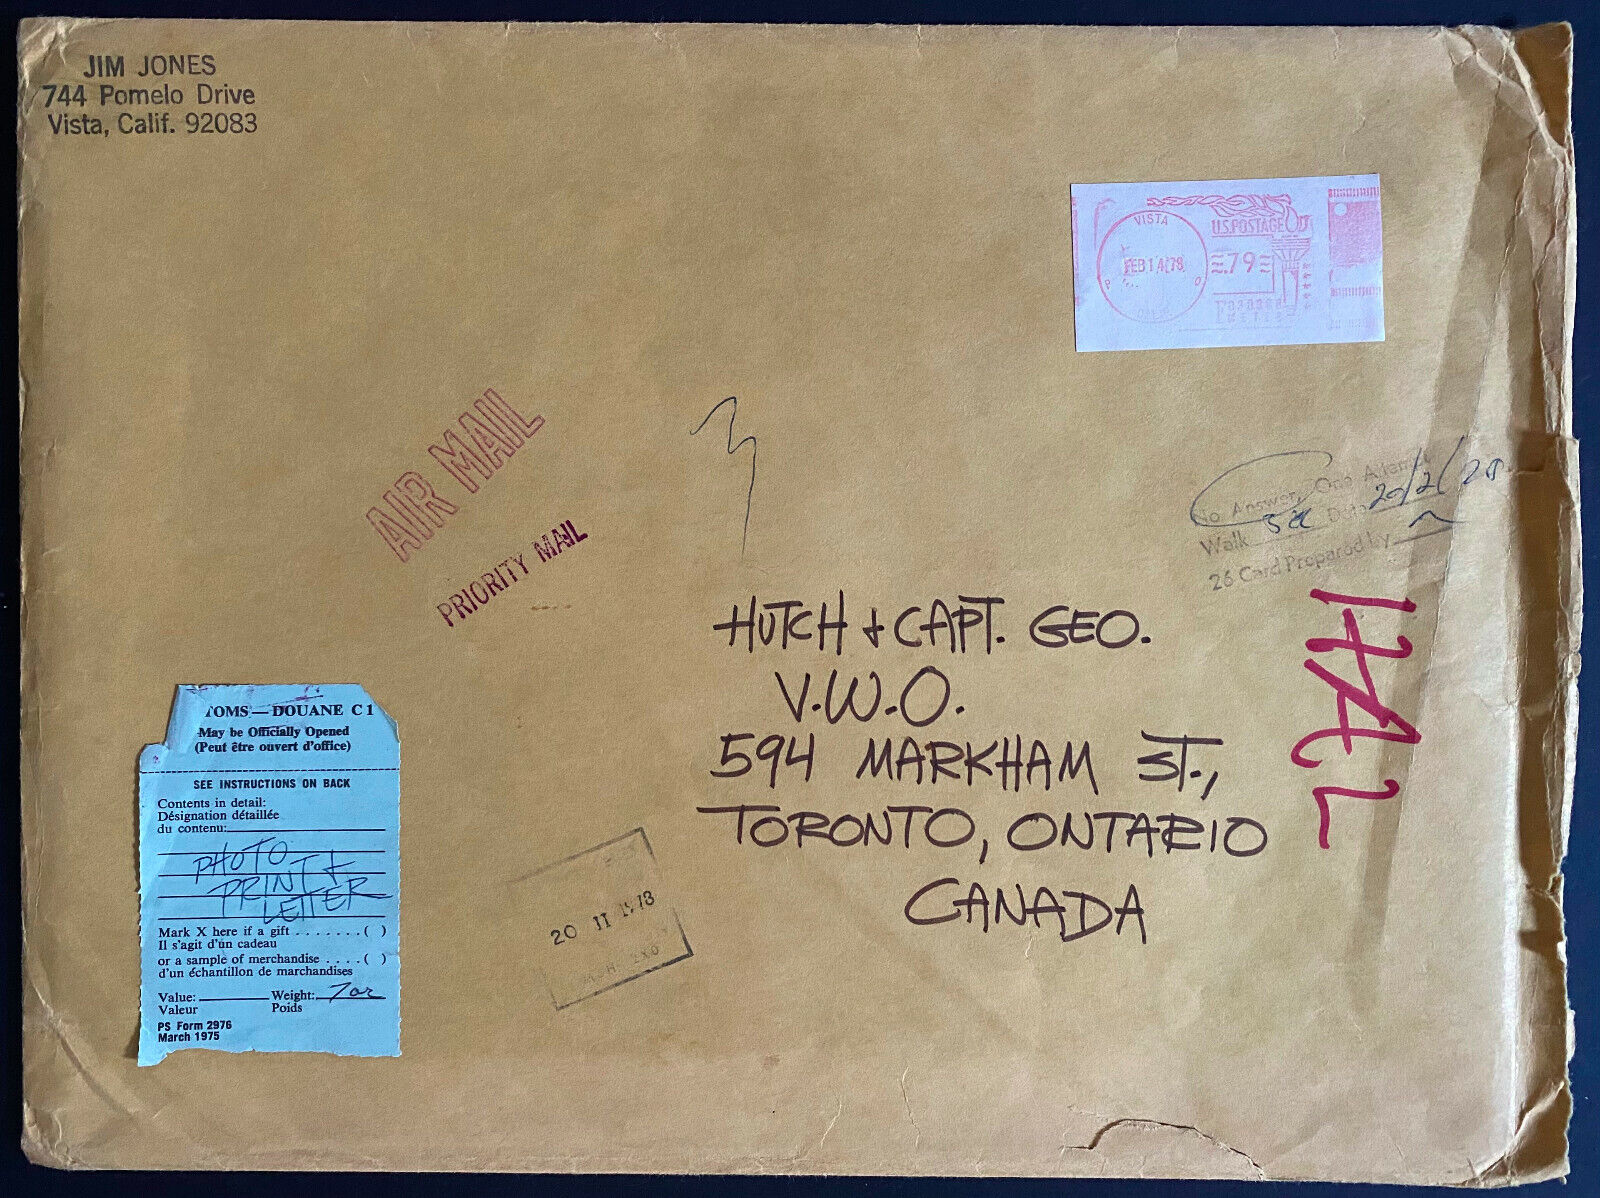 JIM JONES
744 Pomelo Drive
Vista, Calif. 92083
VISTA
FEB 14 '78
P O
U.S.POSTAGE
.79
METER
AIR MAIL
PRIORITY MAIL
No Answer, One Attempt
Walk 5a Date 20/2/78
26 Card Prepared by
HUTCH & CAPT. GEO.
V.W.O.
594 MARKHAM ST.,
TORONTO, ONTARIO
CANADA
TOMS — DOUANE C 1
May be Officially Opened
(Peut être ouvert d'office)
SEE INSTRUCTIONS ON BACK
Contents in detail:
Désignation détaillée
du contenu:
PHOTO
PRINT &
LETTER
Mark X here if a gift . . . . . . . ( )
Il s'agit d'un cadeau
or a sample of merchandise . . . . ( )
d'un échantillon de marchandises
Value: Weight: 7oz
Valeur Poids
PS Form 2976
March 1975
20 II 1978